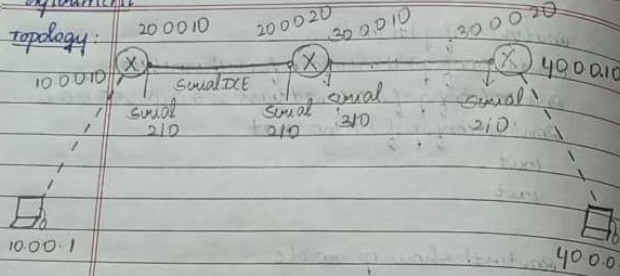 Topology:
20 0 0 10
20 0 0 20
30 0.0 10
30 0 0.20
10 0 0 10
40.0.0.10
Serial DCE
Serial
2/0
Serial
2/0
Serial
3/0
Serial
2/0
10.0 0.1
40.0.0